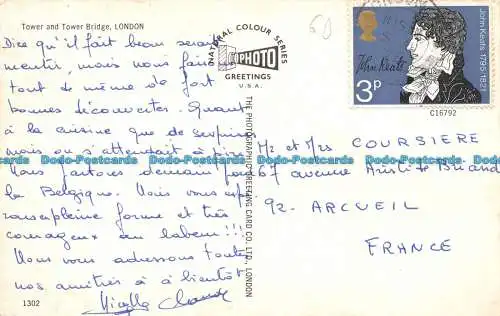 Tower and Tower Bridge, LONDON
Dire qu'il fait beau serait
mentir, mais nous faisons
tout de même de fort
bonnes découvertes. Quant
à la cuisine
mais on s'attendait à pire
Nous partons demain pour
la Belgique. Nous vous
pleine forme et très
courageux au labeur !!!
Nous vous adressons toutes
nos amitiés à bientôt
1302
NATURAL COLOUR SERIES
PHOTO
GREETINGS
U.S.A.
THE PHOTOGRAPHIC GREETING CARD CO., LTD., LONDON
60
John Keats 1795-1821
John Keats
3P
C16792
Mr et Mrs COURSIERE
67 avenue Aristide Briand
92. ARCUEIL
FRANCE
Dodo-Postcards Dodo-Postcards Dodo-Postcards Dodo-Postcards Dodo-Postcards